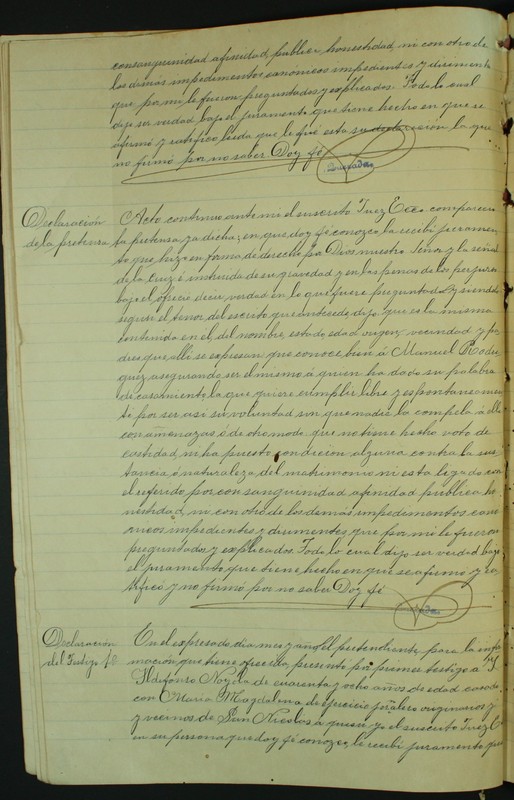 consanguinidad afinidad, publica honestidad ni con otro de
los demás impedimentos canónicos impedientes y dirimentes
que por mi le fueron preguntados y esplicados. Todo lo cual
dijo ser verdad bajo el juramento que tiene hecho en que se
afirmó y ratificó leida que le fue esta su declaración la que
no firmó por no saber Doy fé
Declaración
de la pretensa
Acto continuo ante mi el suscrito Juez Eco compareció
la pretensa ya dicha, en que doy fé conozco la recibi juramen-
to que hizo en forma de derecho por Dios nuestro Señor y la señal
de la Cruz é instruida de su gravedad y en las penas de los perjuros
bajo el ofreció decir verdad en lo que fuere preguntada y siendolo
segun el tenor del escrito que antecede, dijo que es la misma
contenida en el, del nombre, estado, edad origen, vecindad y pa-
dres que alli se espresan que conoce bien á Manuel Rodri-
guez, asegurando ser el mismo á quien ha dado su palabra
de casamiento la que quiere cumplir libre y espontaneamen-
te por ser asi su voluntad sin que nadie la compela á ello
con amenazas ó de otro modo que no tiene hecho voto de
castidad, ni ha puesto condicion alguna contra la sus-
tancia ó naturaleza del matrimonio ni esta ligada con
el referido por consanguinidad afinidad publica ho-
nestidad, ni con otro de los demás impedimentos canó-
nicos impedientes y dirimentes que por mi le fueron
preguntados y esplicados. Todo lo cual dijo ser verdad bajo
el juramento que tiene hecho en que se afirmó y ra-
tificó y no firmó por no saber Doy fé
Declaración
del Testigo 1º
En el expresado dia mes y año el pretendiente para la infor-
mación que tiene ofrecida, presentó por primer testigo a
Ildefonso de cuarenta y ocho años de edad casado
con Maria Magdalena de ejercicio jornalero originarios y
y vecinos de San Nicolas á quien yo el suscrito Juez E
en su persona que doy fé conozco, le recibi juramento que